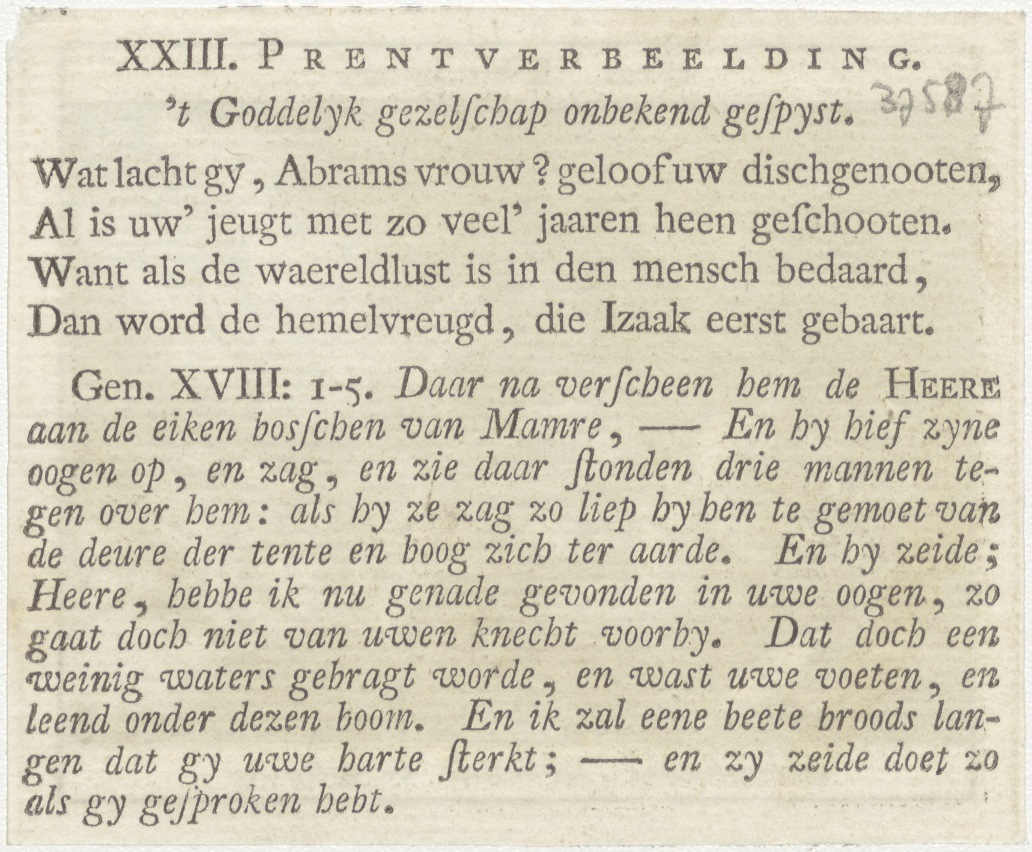 XXIII. PRENTVERBEELDING.
't Goddelyk gezelſchap onbekend geſpyst. 37587
Wat lacht gy, Abrams vrouw? geloof uw dischgenooten,
Al is uw' jeugt met zo veel' jaaren heen geſchooten.
Want als de waereldlust is in den mensch bedaard,
Dan word de hemelvreugd, die Izaak eerst gebaart.
Gen. XVIII: 1-5. Daar na verſcheen hem de HEERE
aan de eiken bosſchen van Mamre, — En hy hief zyne
oogen op, en zag, en zie daar ſtonden drie mannen te-
gen over hem: als hy ze zag zo liep hy hen te gemoet van
de deure der tente en boog zich ter aarde. En hy zeide;
Heere, hebbe ik nu genade gevonden in uwe oogen, zo
gaat doch niet van uwen knecht voorby. Dat doch een
weinig waters gebragt worde, en wast uwe voeten, en
leend onder dezen boom. En ik zal eene beete broods lan-
gen dat gy uwe harte ſterkt; — en zy zeide doet zo
als gy geſproken hebt.